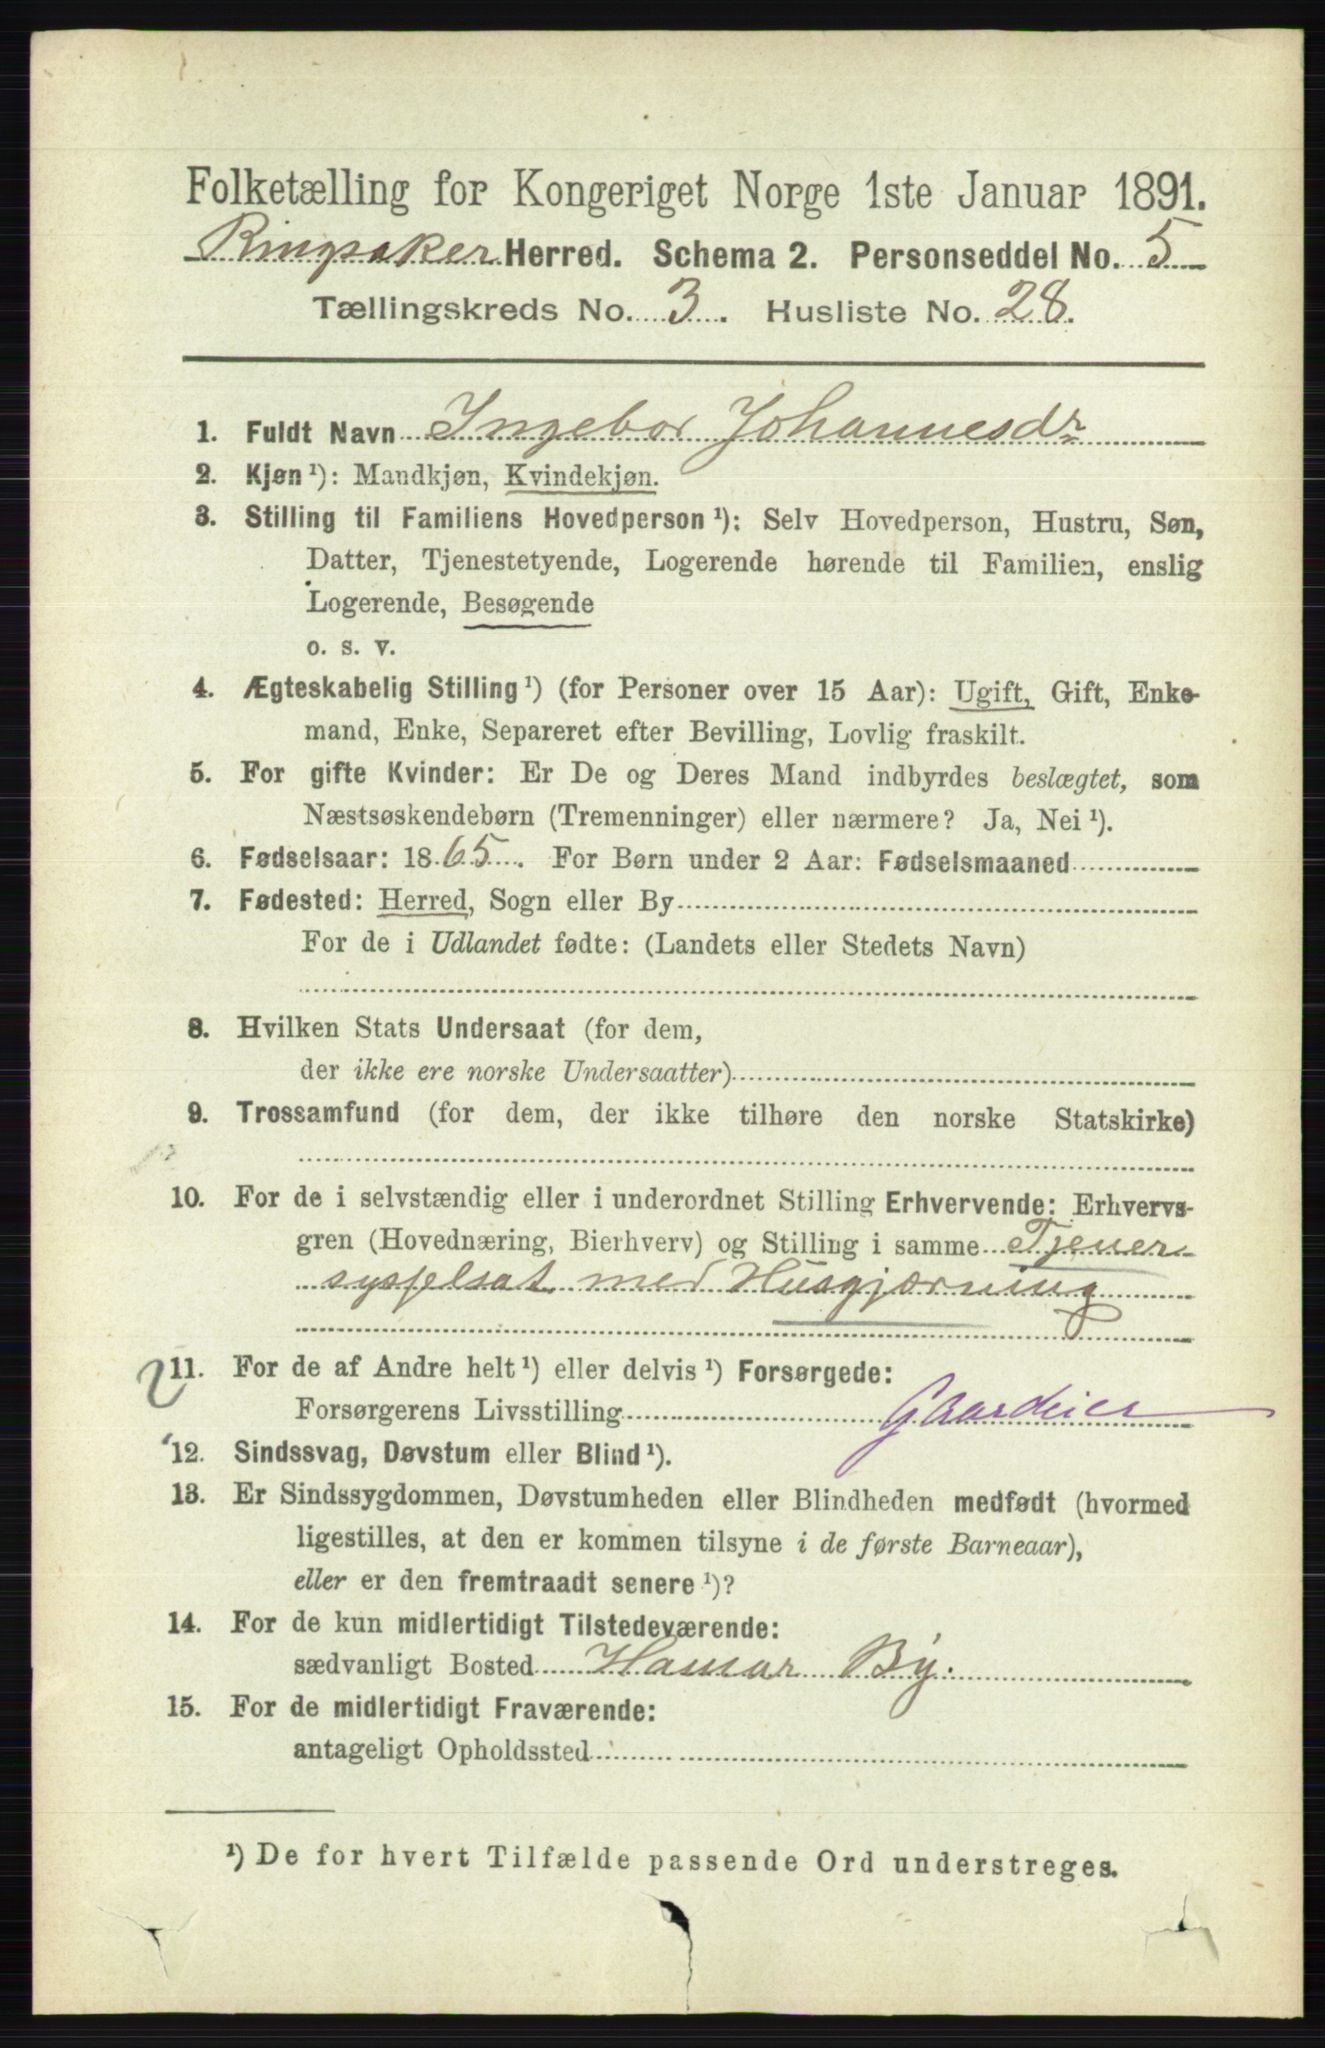 Folketælling for Kongeriget Norge 1ste Januar 1891.
Ringsaker Herred. Schema 2. Personseddel No. 5
Tællingskreds No. 3. Husliste No. 28.
1. Fuldt Navn Ingebor Johannesdr
2. Kjøn ¹): Mandkjøn, Kvindekjøn.
3. Stilling til Familiens Hovedperson ¹): Selv Hovedperson, Hustru, Søn,
Datter, Tjenestetyende, Logerende hørende til Familien, enslig
Logerende, Besøgende
o. s. v.
4. Ægteskabelig Stilling ¹) (for Personer over 15 Aar): Ugift, Gift, Enke-
mand, Enke, Separeret efter Bevilling, Lovlig fraskilt.
5. For gifte Kvinder: Er De og Deres Mand indbyrdes beslægtet, som
Næstsøskendebørn (Tremenninger) eller nærmere? Ja, Nei ¹).
6. Fødselsaar: 1865. For Børn under 2 Aar: Fødselsmaaned
7. Fødested: Herred, Sogn eller By
For de i Udlandet fødte: (Landets eller Stedets Navn)
8. Hvilken Stats Undersaat (for dem,
der ikke ere norske Undersaatter)
9. Trossamfund (for dem, der ikke tilhøre den norske Statskirke)
10. For de i selvstændig eller i underordnet Stilling Erhvervende: Erhvervs-
gren (Hovednæring, Bierhverv) og Stilling i samme Tjener
sysselsat med Husgjærning
2 11. For de af Andre helt ¹) eller delvis ¹) Forsørgede:
Forsørgerens Livsstilling Gaardeier
12. Sindssvag, Døvstum eller Blind ¹).
13. Er Sindssygdommen, Døvstumheden eller Blindheden medfødt (hvormed
ligestilles, at den er kommen tilsyne i de første Barneaar),
eller er den fremtraadt senere ¹)?
14. For de kun midlertidigt Tilstedeværende:
sædvanligt Bosted Hamar By.
15. For de midlertidigt Fraværende:
antageligt Opholdssted
¹) De for hvert Tilfælde passende Ord understreges.